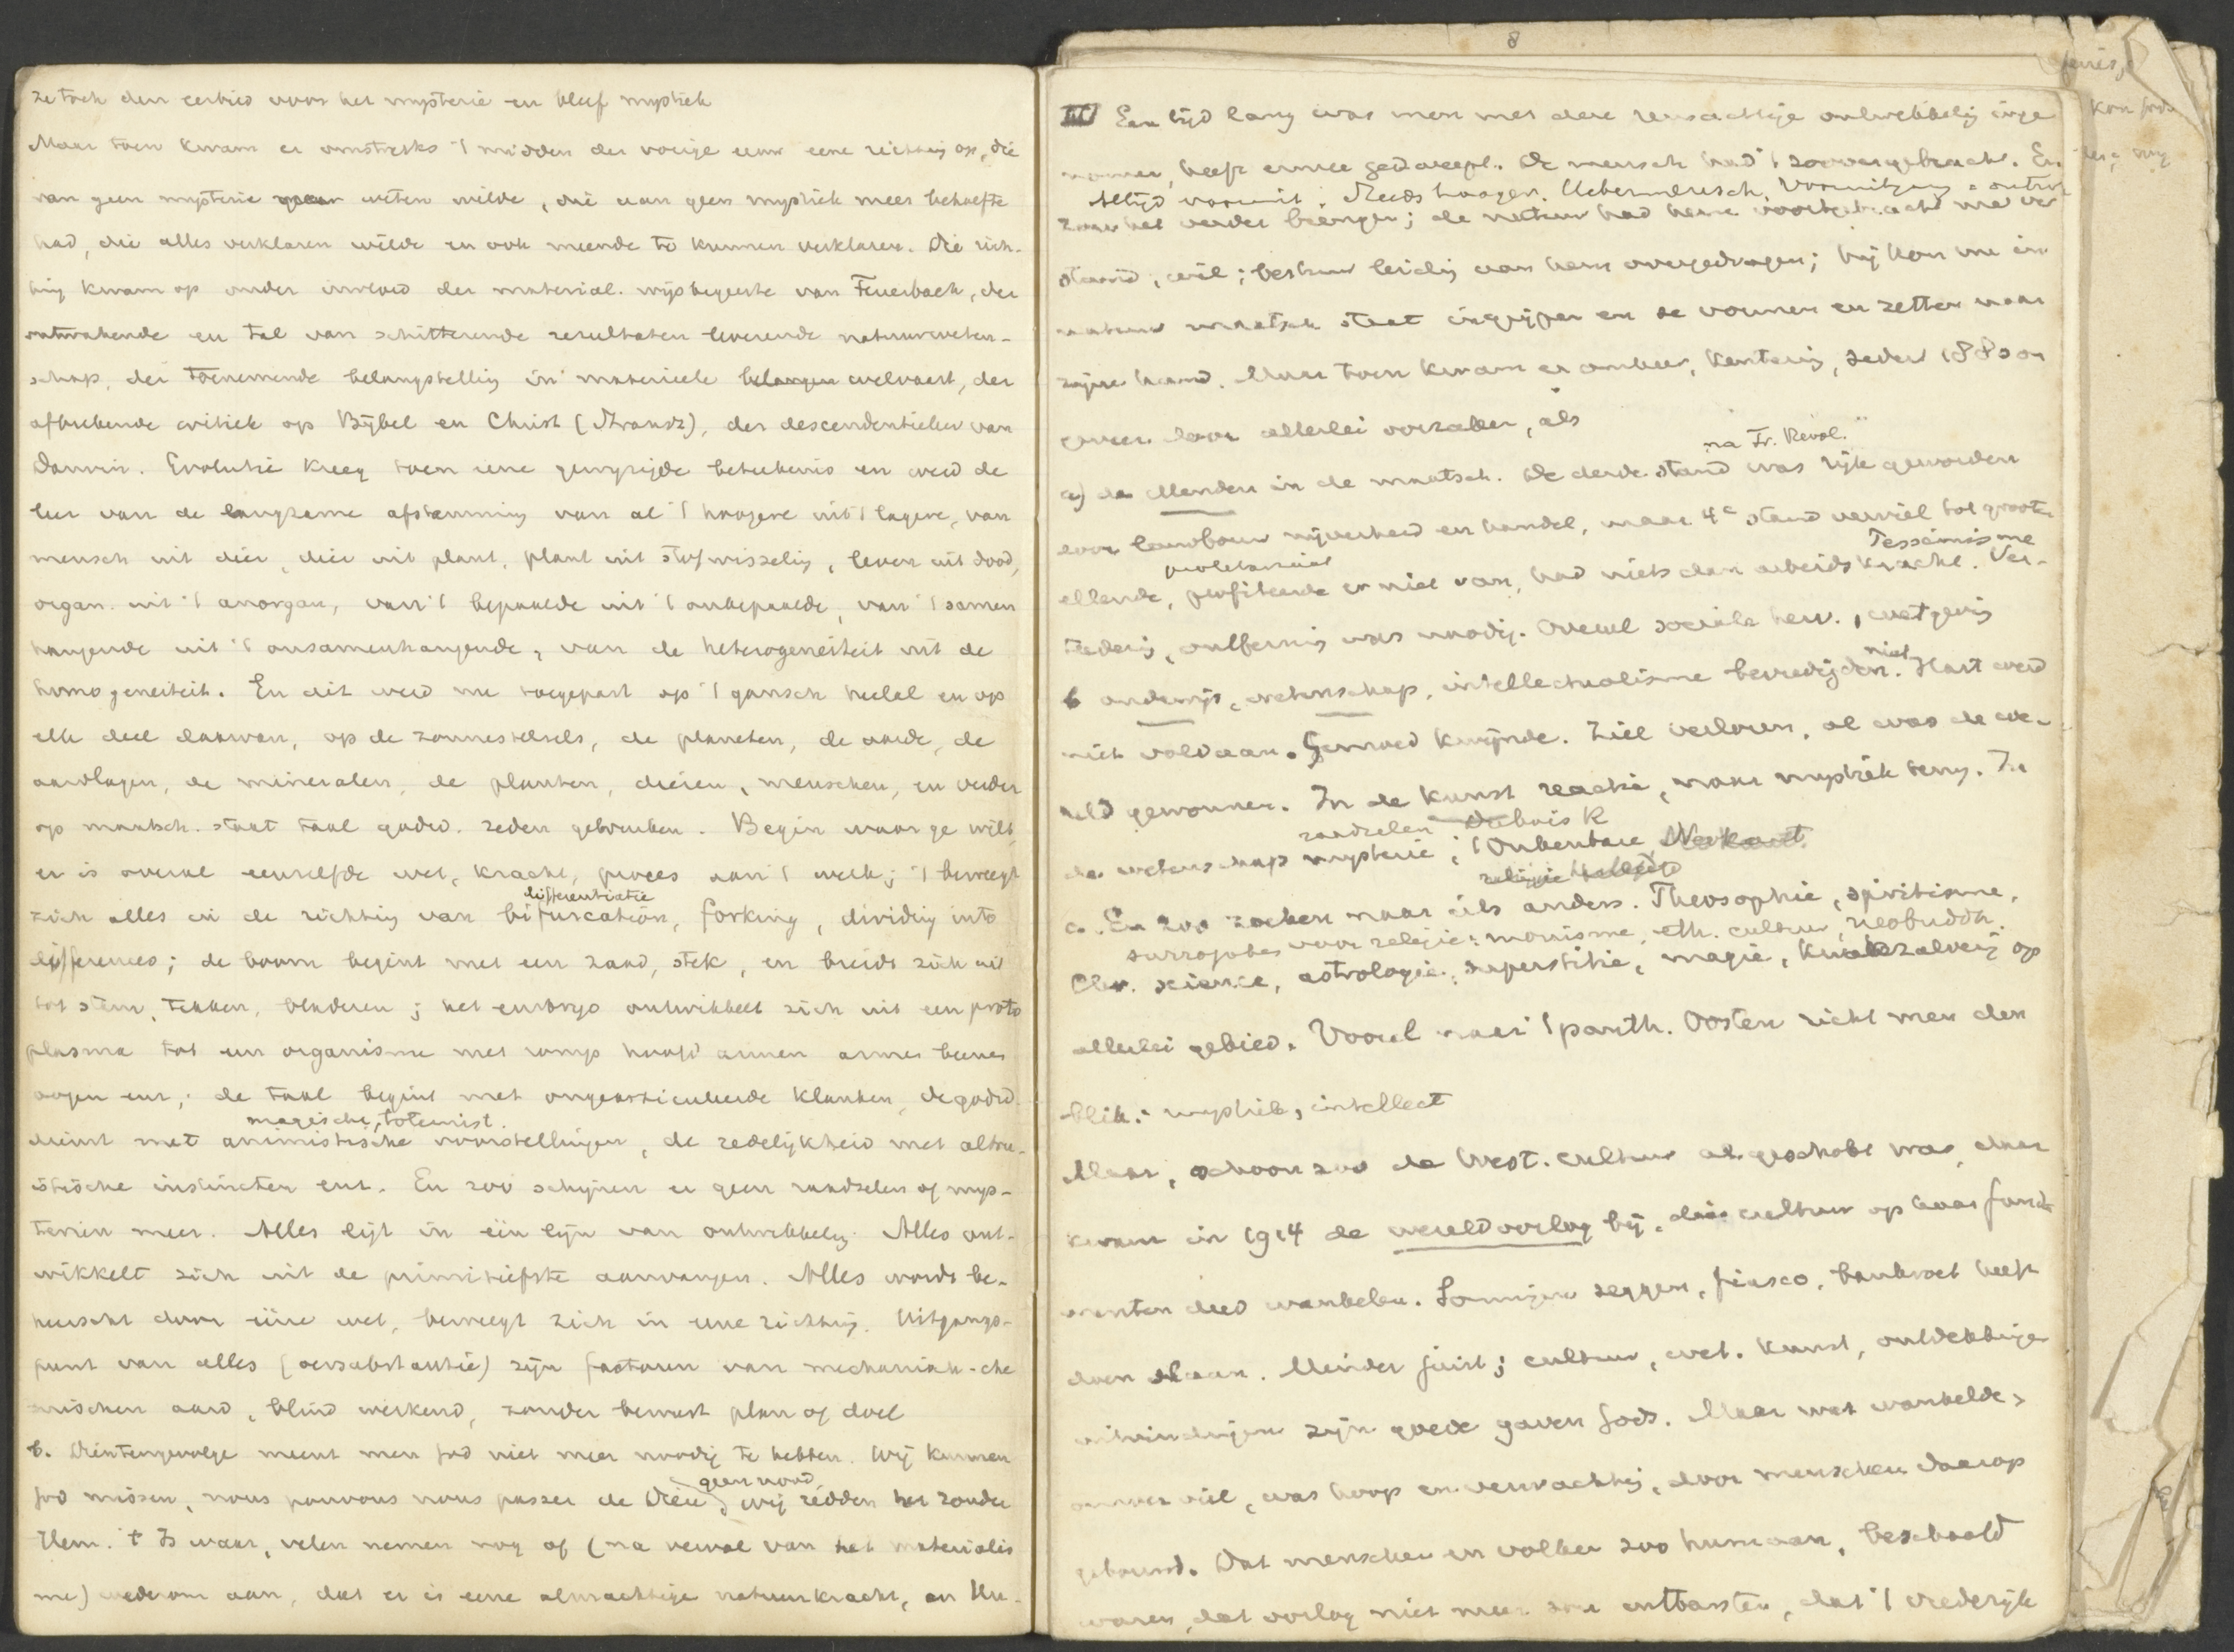 ze toch den eerbied voor het mysterie en bleef mystiek
Maar toen kwam er omstreeks 't midden der vorige eeuw eene richting op, die
van geen mysterie weten wilde, die aan geen mystiek meer behoefte
had, die alles verklaren wilde en ook meende te kunnen verklaren. Die rich-
ting kwam op onder invloed der material. wijsbegeerte van Feuerbach, der
ontwakende en tal van schitterende resultaten leverende natuurweten-
schap, der toenemende belangstelling in materieele belangen welvaart, der
afbrekende critiek op Bijbel en Christ (Strausz), der descendentieleer van
Darwin. Evolutie kreeg toen eene gewijzigde beteekenis en werd de
leer van de langzame afstamming van al 't hoogere uit 't lagere, van
mensch uit dier, dier uit plant, plant uit stofwisseling, leven uit dood,
organ. uit 't anorgan, van 't bepaalde uit 't onbepaalde, van 't samen
hangende uit 't onsamenhangende, van de heterogeneiteit uit de
homogeneiteit. En dit werd nu toegepast op 't gansch heelal en op
elk deel daarvan, op de zonnestelsels, de planeten, de aarde, de
aardlagen, de mineralen, de planten, dieren, menschen, en verder
op maatsch. staat taal godsd. zeden gebruiken. Begin waar ge wilt,
er is overal eenzelfde wet, kracht, proces aan 't werk; 't beweegt
differentiatie
zich alles in de richting van bifurcation, forking, dividing into
differences; de boom begint met een zaad, stek, en breidt zich uit
tot stam, takken, bladeren; het embryo ontwikkelt zich uit een proto
plasma tot een organisme met romp hoofd armen beenen
oogen enz.; de taal begint met ongearticuleerde klanken, de godsd.
magische, totemist.
dienst met animistische voorstellingen, de zedelijkheid met altru-
istische instincten enz. En zoo schijnen er geen raadselen of mys-
teriën meer. Alles ligt in één lijn van ontwikkeling. Alles ont-
wikkelt zich uit de primitiefste aanvangen. Alles wordt be-
heerscht door ééne wet, beweegt zich in eene richting. Uitgangs-
punt van alles (oersubstantie) zijn factoren van mechanisch-che
mischen aard, blind werkend, zonder bewust plan of doel
b. Dientengevolge meent men God niet meer noodig te hebben. Wij kunnen
geen nood
God missen, nous pouvons nous passer de Dieu, wij redden het zonder
Hem. 't Is waar, velen nemen nog of (na verval van het materialis
me) wederom aan, dat er is eene almachtige natuurkracht, an Un-
8
III Een tijd lang was men met deze reusachtige ontwikkeling inge
nomen, heeft ermee gedweept. De mensch had 't zoover gebracht. En
Altijd vooruit. Steeds hooger. Uebermensch. Vooruitgang
zou het verder brengen; de natuur had hem voortgebracht met ver
stand, wil; bestuur leiding aan hem overgedragen; hij kon nu in
natuur maatsch staat ingrijpen en ze vormen en zetten naar
zijne hand. Maar toen kwam er omkeer, kentering, sedert 1880 on
geveer door allerlei oorzaken, als
na Fr. Revol.
a) de ellenden in de maatsch. De derde stand was rijk geworden
door landbouw nijverheid en handel, maar 4e stand verviel tot groote
proletariaat
Pessimisme
ellende, profiteerde er niet van, had niets dan arbeidskracht. Ver-
betering, was noodig. Overal sociale herv., wetgeving
niet
b onderwijs, wetenschap, intellectualisme bevredigden. Hart werd
niet voldaan. Gemoed kwijnde. Ziel verloren, al was de we-
reld gewonnen. In de kunst reactie, naar mystiek terug. In
raadselen Dubois R
de wetenschap mysterie; 't Onkenbare
c. En zoo zoeken naar iets anders. Theosophie, spiritisme,
surrogaten voor religie: monisme, eth. cultuur, neobuddh.
Chr. science, astrologie, superstitie, magie, kwakzalverij op
allerlei gebied. Vooral naar 't panth. Oosten richt men den
blik: mystiek, intellect
Maar, schoon zoo de West. cultuur al geschokt was, daar
kwam in 1914 de wereldoorlog bij, die cultuur op haar funda
menten deed wankelen. Sommigen zeggen, fiasco, bankroet heeft
doen slaan. Minder juist; cultuur, wet. kunst, ontdekkingen
uitvindingen zijn goede gaven Gods. Maar wat wankelde,
omver viel, was hoop en verwachting, door menschen daarop
gebouwd. Dat menschen en volken zoo humaan, beschaafd
waren, dat oorlog niet meer zou ontbarsten, dat 't vrederijk